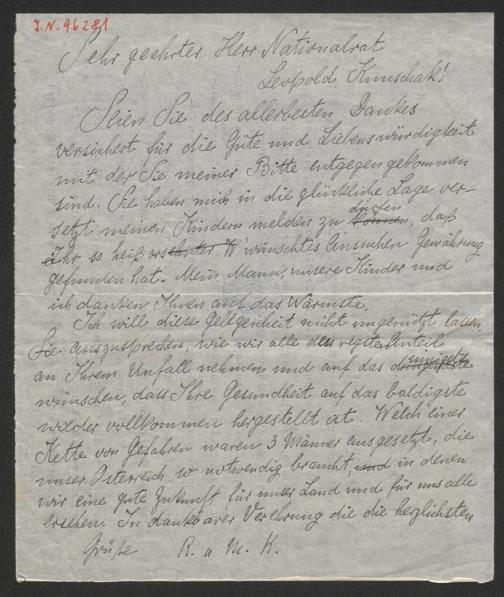 J.N. 96281
Sehr geehrter Herr Nationalrat
Leopold Kunschak!
Seien Sie des allerbesten Dankes
versichert für die Güte und Liebenswürdigkeit
mit der Sie meiner Bitte entgegengekommen
sind. Sie haben mich in die glückliche Lage ver-
setzt meinen Kindern melden zu können dürfen, daß
Ihr so heiß ersehnter wünschtes Ansuchen Gewährung
gefunden hat. Mein Mann, unsere Kinder und
ich danken Ihnen auf das Wärmste.
Ich will diese Gelegenheit nicht ungenützt lassen,
Sie auszusprechen, wie wir alle den regsten Anteil
an Ihrem Unfall nehmen und auf das innigste
wünschen, dass Ihre Gesundheit auf das baldigste
wieder vollkommen hergestellt ist. Welch einer
Kette von Gefahren waren 3 Männer ausgesetzt, die
unser Österreich so notwendig braucht, und in denen
wir eine gute Zukunft für unser Land und für uns alle
ersehen. In dankbarer Verehrung die die herzlichsten
Grüße R. a M. K.